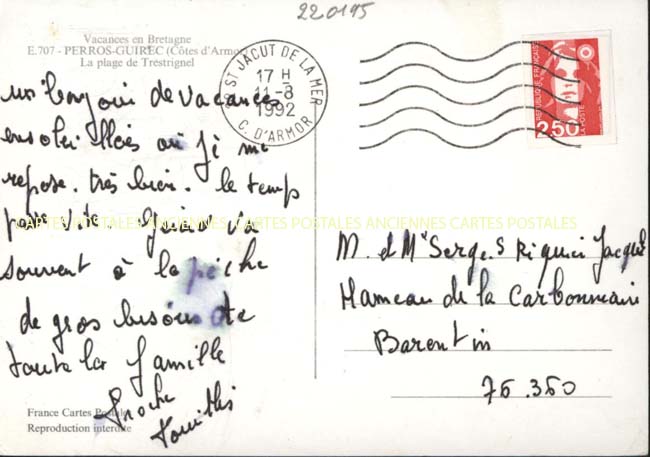 220195
Vacances en Bretagne
E.707 - PERROS-GUIREC (Côtes d'Armor)
La plage de Trestrignel
un bonjour de vacances
ensoleillées où je me
repose. très bien. le temps
passe vite. Gérard va
souvent à la pêche
de gros bisous de
toute la famille
France Cartes Postales
Reproduction interdite
22 ST JACUT DE LA MER
17 H
11-8
1992
C. D'ARMOR
REPUBLIQUE FRANÇAISE
2,50
LA POSTE
CARTES POSTALES ANCIENNES CARTES POSTALES ANCIENNES CARTES POSTALES
M. et Mr Serge
Hameau de la Carbonnain
Barentin
76.360